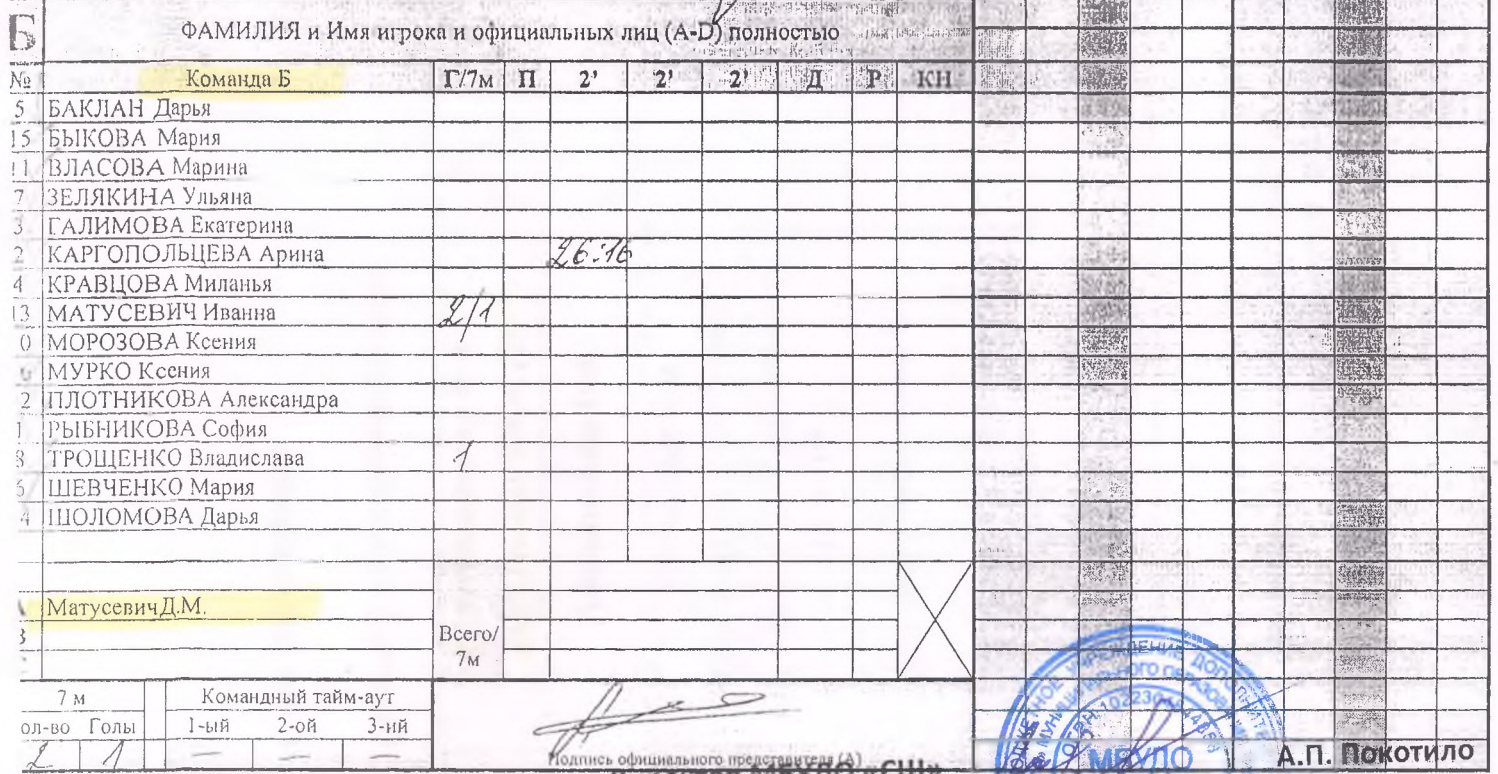 Б ФАМИЛИЯ и Имя игрока и официальных лиц (A-D) полностью
№ Команда Б Г/7м П 2' 2' 2' Д Р КН
5 БАКЛАН Дарья
15 БЫКОВА Мария
11 ВЛАСОВА Марина
7 ЗЕЛЯКИНА Ульяна
3 ГАЛИМОВА Екатерина
2 КАРГОПОЛЬЦЕВА Арина 26:16
4 КРАВЦОВА Миланья
13 МАТУСЕВИЧ Иванна 2/1
0 МОРОЗОВА Ксения
МУРКО Ксения
2 ПЛОТНИКОВА Александра
1 РЫБНИКОВА София
8 ТРОЩЕНКО Владислава 1
6 ШЕВЧЕНКО Мария
4 ШОЛОМОВА Дарья
Матусевич Д.М.
Всего/
7м
7 м Командный тайм-аут
ол-во Голы 1-ый 2-ой 3-ий
2 1 — — —
Подпись официального представителя (А)
МБУДО «СШ»
МБУДО
А.П. Покотило